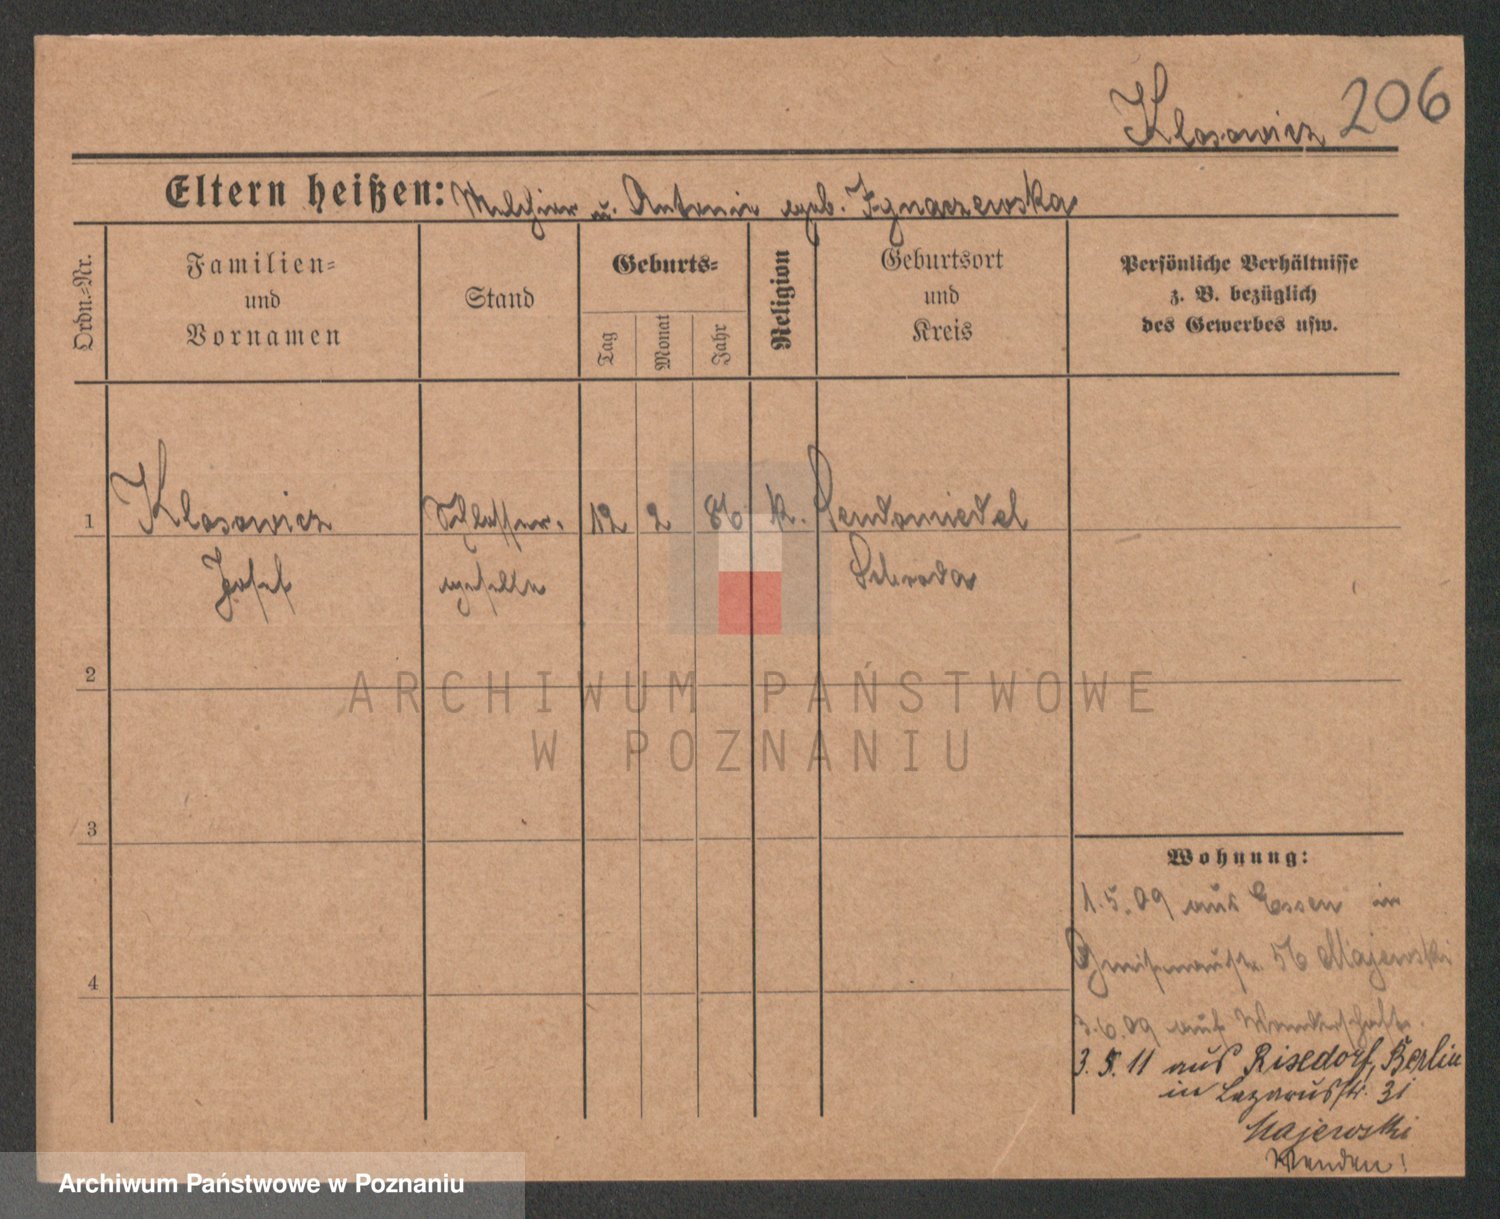 Klosowicz 206
Eltern heißen: Melchior u. Antonie geb. Ignaczewska
Ordn.-Nr.
Familien-
und
Vornamen
Stand
Geburts-
Tag
Monat
Jahr
Religion
Geburtsort
und
Kreis
Persönliche Verhältnisse
z. B. bezüglich
des Gewerbes usw.
1 Klosowicz Schlosser- 12 2 86 k.
Josef geselle Schroda
2
3
4
ARCHIWUM PAŃSTWOWE
W POZNANIU
Wohnung:
1.5.09 aus Essen in
Gneisenaustr. 56 Majewski
3.6.09 auf Wanderschaft.
3.5.11 aus Risedorf, Berlin
in Lazarusstr. 31
Majewski
Wenden!
Archiwum Państwowe w Poznaniu